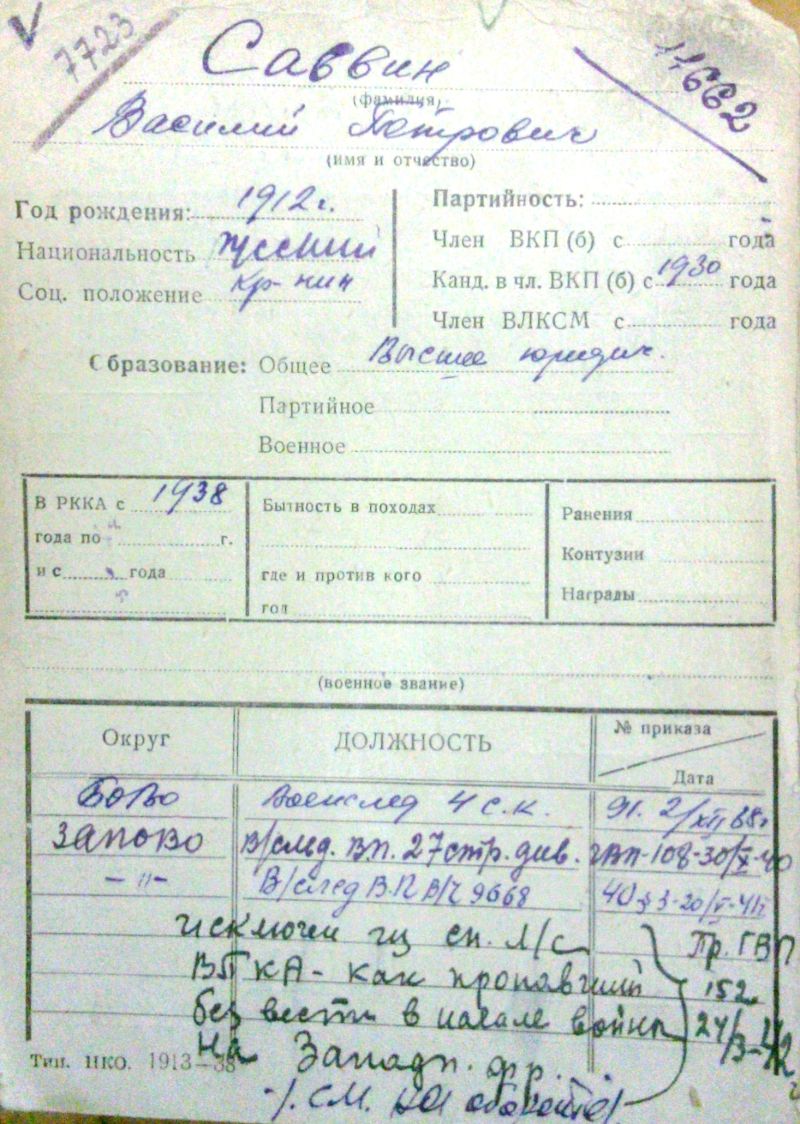 7723
11662
Саввин
(фамилия)
Василий Петрович
(имя и отчество)
Год рождения: 1912 г.
Национальность русский
Соц. положение кр-нин
Партийность:
Член ВКП(б) с года
Канд. в чл. ВКП(б) с 1930 года
Член ВЛКСМ с года
Образование: Общее Высшее юридич.
Партийное
Военное
В РККА с 1938
года по г.
и с года
Бытность в походах
где и против кого
год
Ранения
Контузии
Награды
(военное звание)
Округ ДОЛЖНОСТЬ № приказа
Дата
БОВО Военслед 4 с.к. 91. 2/XII 38г
ЗАПОВО В/след. ВП. 27 стр. див. ГВП-108-30/X-40
—〃— В/след ВП В/Ч 9668 40 § 3-20/V-41г
исключен из сп. л/с Пр. ГВП
ВПКА - как пропавший 152
без вести в начале войны 24/
на Западн. фр.
/. см. на обороте/
Тип. НКО. 1913—38